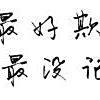 最好欺
最没记